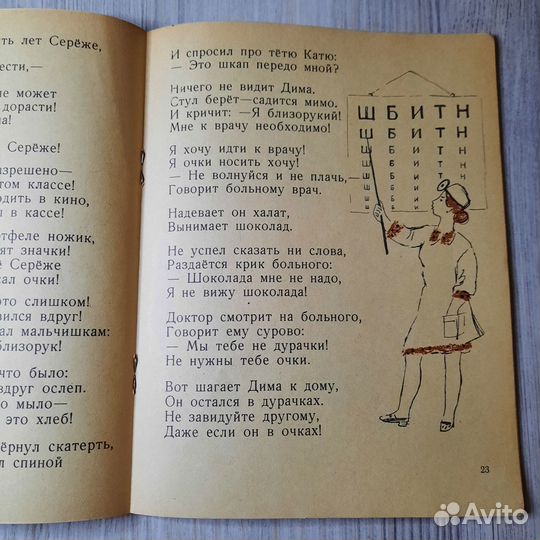 ть лет Серёже,
ести,—
не может
дорасти!
на!
Серёже!
азрешено—
том классе!
одить в кино,
ы в кассе!
тфеле ножик,
ят значки!
ё Серёже
сал очки!
это слишком!
вился вдруг!
ал мальчишкам:
близорук!
что было:
вдруг ослеп.
о мыло—
это хлеб!
ёрнул скатерть,
л спиной
И спросил про тётю Катю:
— Это шкап передо мной?
Ничего не видит Дима.
Стул берёт—садится мимо.
И кричит: —Я близорукий!
Мне к врачу необходимо!
Я хочу идти к врачу!
Я очки носить хочу!
— Не волнуйся и не плачь,—
Говорит больному врач.
Надевает он халат,
Вынимает шоколад.
Не успел сказать ни слова,
Раздаётся крик больного:
— Шоколада мне не надо,
Я не вижу шоколада!
Доктор смотрит на больного,
Говорит ему сурово:
— Мы тебе не дурачки!
Не нужны тебе очки.
Вот шагает Дима к дому,
Он остался в дурачках.
Не завидуйте другому,
Даже если он в очках!
Ш Б И Т Н
Ш Б И Т Н
23
Avito